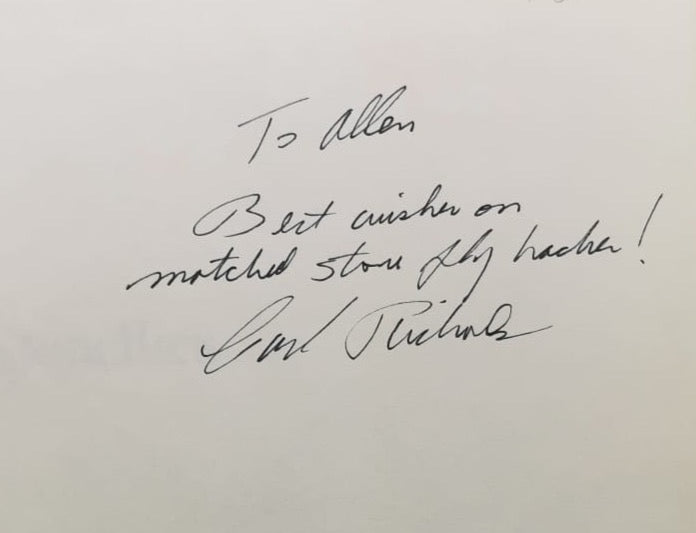 To Allen
Best wishes on
matched stone fly hacker!
Carl Richards